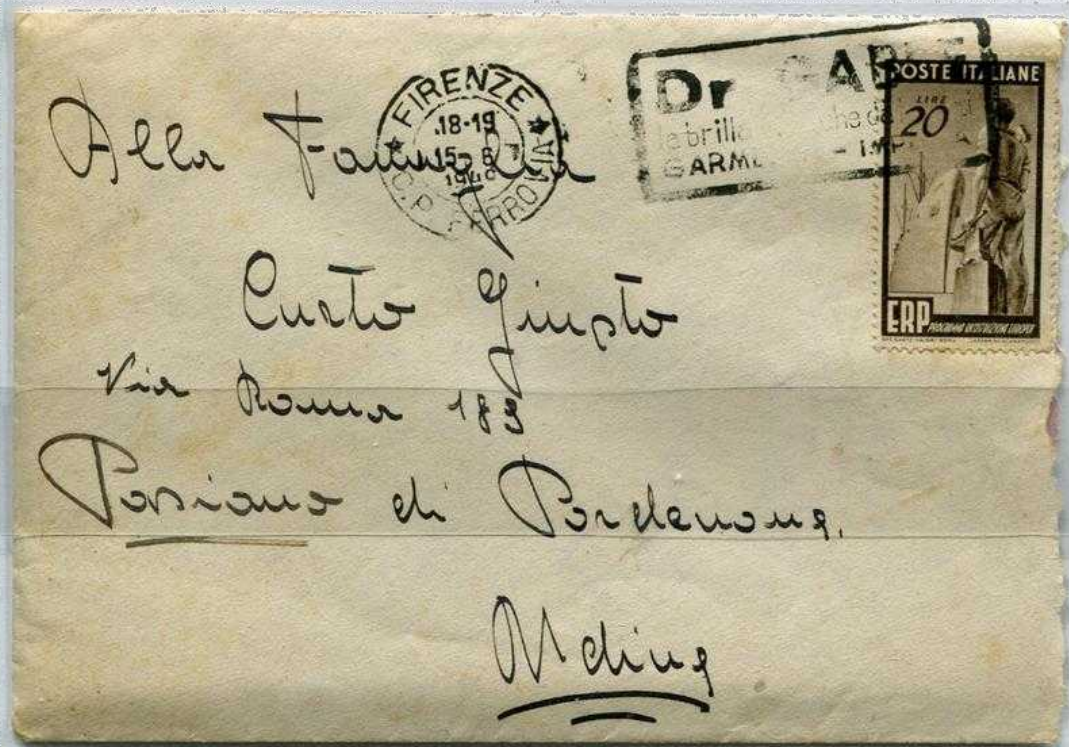 FIRENZE
18-19
15-6
1949
C.P. FERROVIA
Dr
le brilla che
GARM
POSTE ITALIANE
LIRE
20
ERP
PROGRAMMA RICOSTRUZIONE EUROPEA
Alla Famiglia
Custo Giusto
Via Roma 189
Pasiano di Pordenone.
Udine